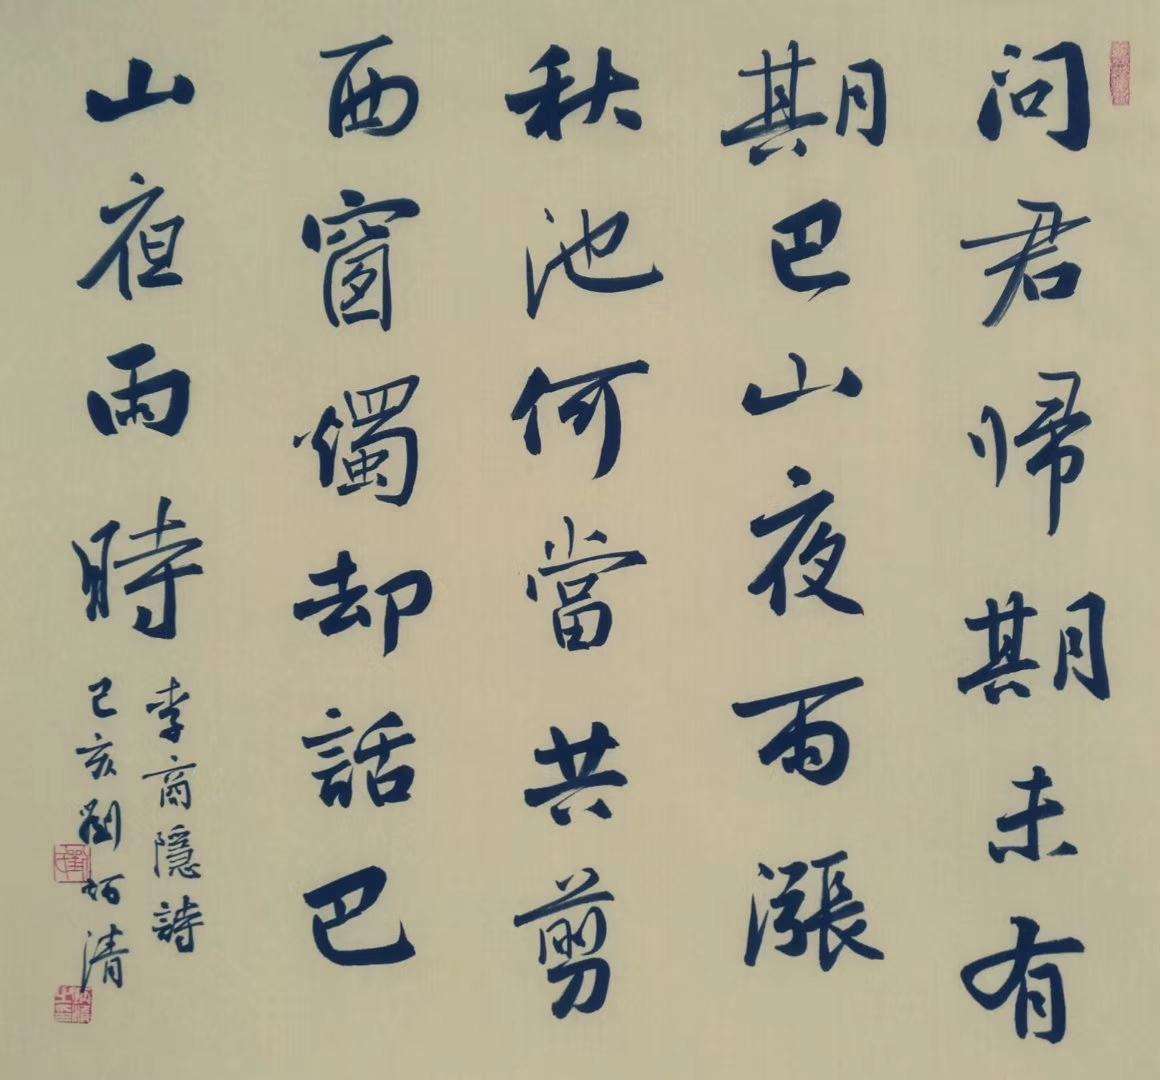 问君帰期未有
期巴山夜雨漲
秋池何當共剪
西窗燭却話巴
山夜雨時
李商隱詩
己亥劉炳清